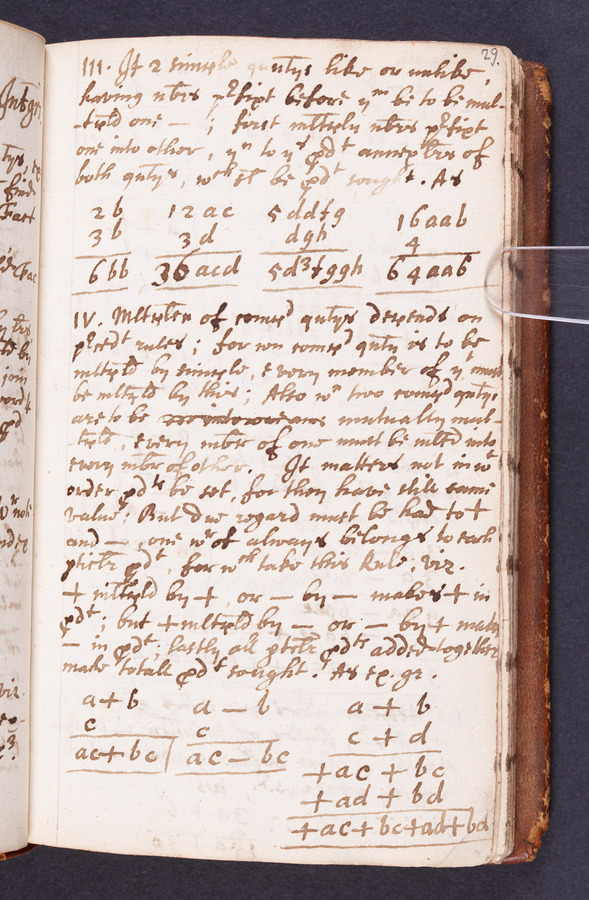 29.
III. If 2 simple quntys like or unlike,
having nbrs p^rfixt before y^m be to be mul-
-tipld one — ; first mltiply nbrs p^rfixt
one into other, y^n to y^s pd^t annex ltrs of
both quntys, w^ch be pd^t sought. As
2b 12ac 5ddfg 16aab
3b 3d dgh 4
6bb 36acd 5d³fggh 64aab
IV. Mltiplcn of comp^d quntys depends on
p^rced^t rules; for wn comp^d qunty is to be
mltipld by simple, every member of y^t must
be mltipld by this; Also w^n two comp^d quntys
are to be mutually mul-
-tipld, every mbr of one must be mltd into
every mbr of other. It matters not in w^t
order pd^ts be set, for they have still same
value: But due regard must be had to +
and —, one w^rof always belongs to each
pticlr pd^t, for w^ch take this Rule; viz.
+ mltipld by +, or — by — makes + in
pd^t; but + mltipld by — or — by + makes
— in pd^t; lastly all pticlr pd^ts added together
make totall pd^t sought. As ex. gr.
a + b a — b a + b
c c c + d
ac + bc ac — bc + ac + bc
+ ad + bd
+ ac + bc + ad + bd